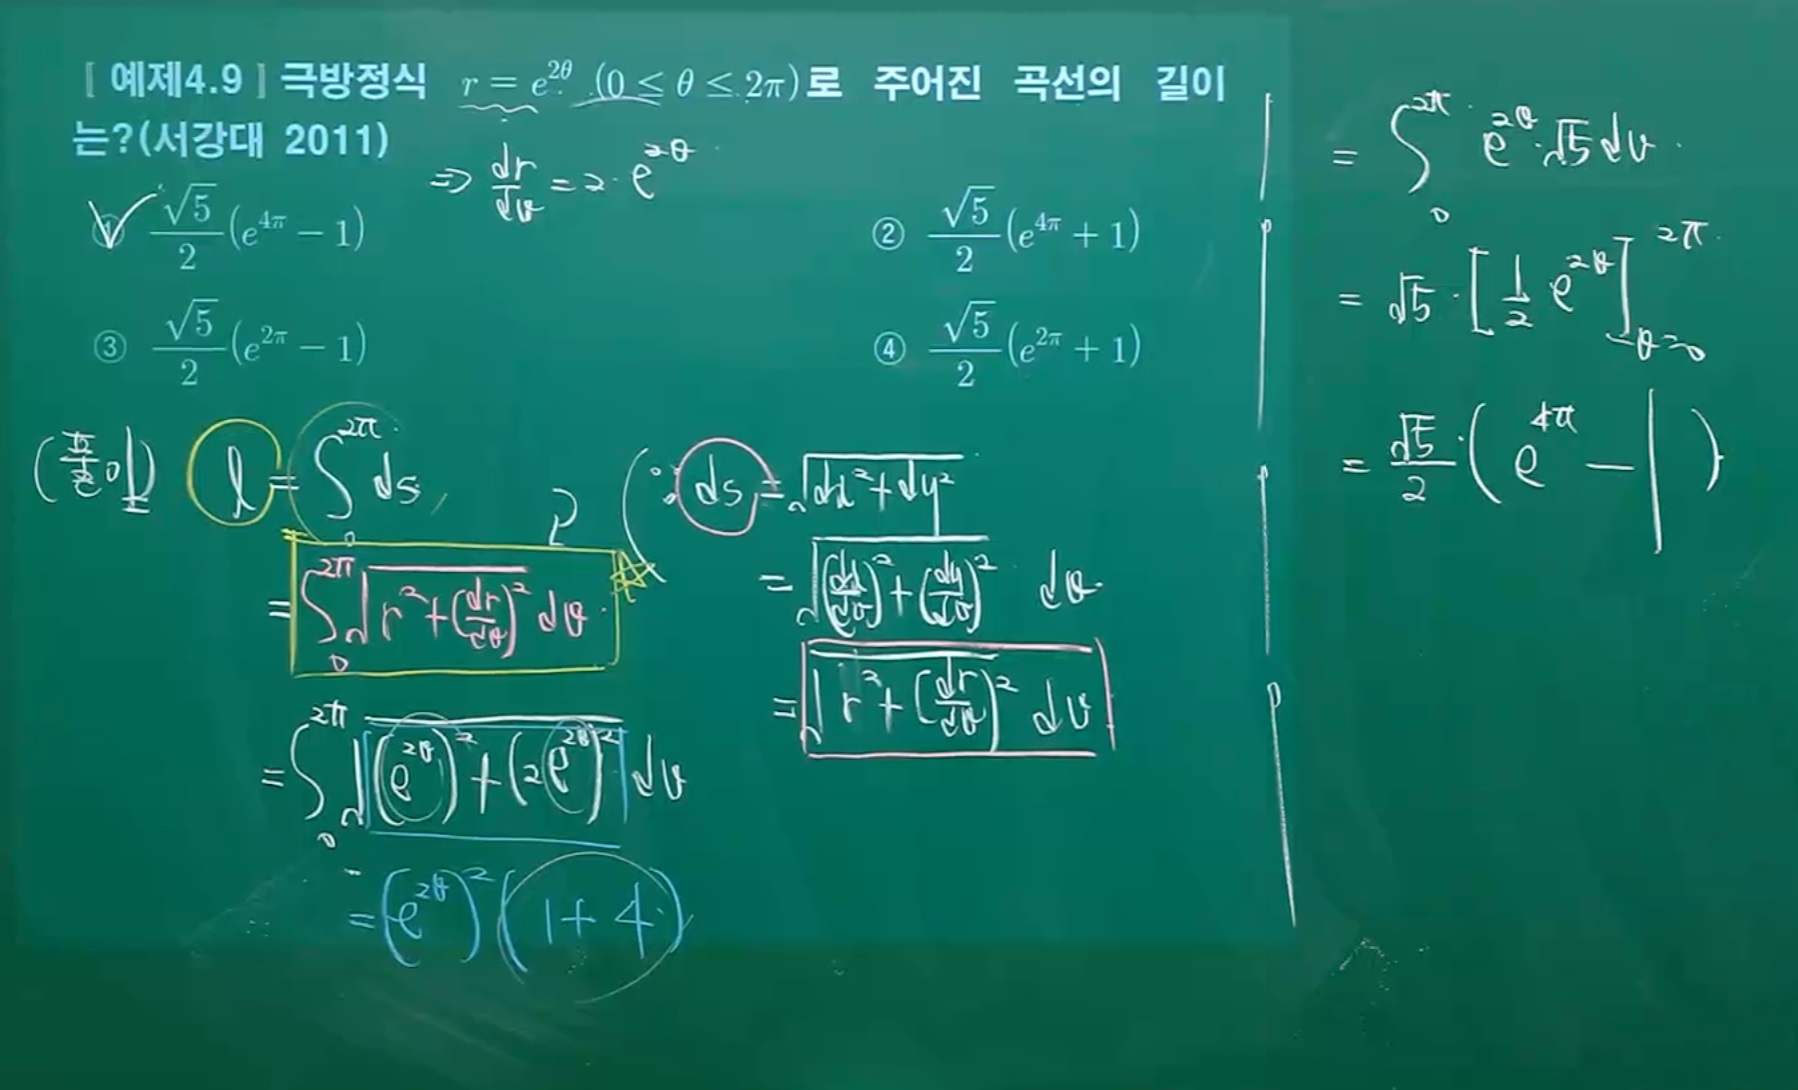 [예제4.9] 극방정식 r = e^{2θ} (0 ≤ θ ≤ 2π)로 주어진 곡선의 길이
는?(서강대 2011)
⇒ dr/dθ = 2·e^{2θ}
① √5/2 (e^{4π} − 1)
② √5/2 (e^{4π} + 1)
③ √5/2 (e^{2π} − 1)
④ √5/2 (e^{2π} + 1)
(풀이) l = ∫_0^{2π} ds
= ∫_0^{2π} √(r² + (dr/dθ)²) dθ
= ∫_0^{2π} √((e^{2θ})² + (2e^{2θ})²) dθ
= (e^{2θ})² (1+4)
(∵ ds = √(dx² + dy²)
= √((dx/dθ)² + (dy/dθ)²) dθ
= √(r² + (dr/dθ)²) dθ
= ∫_0^{2π} e^{2θ}·√5 dθ
= √5·[1/2 e^{2θ}]_{θ=0}^{2π}
= √5/2·(e^{4π} − 1)